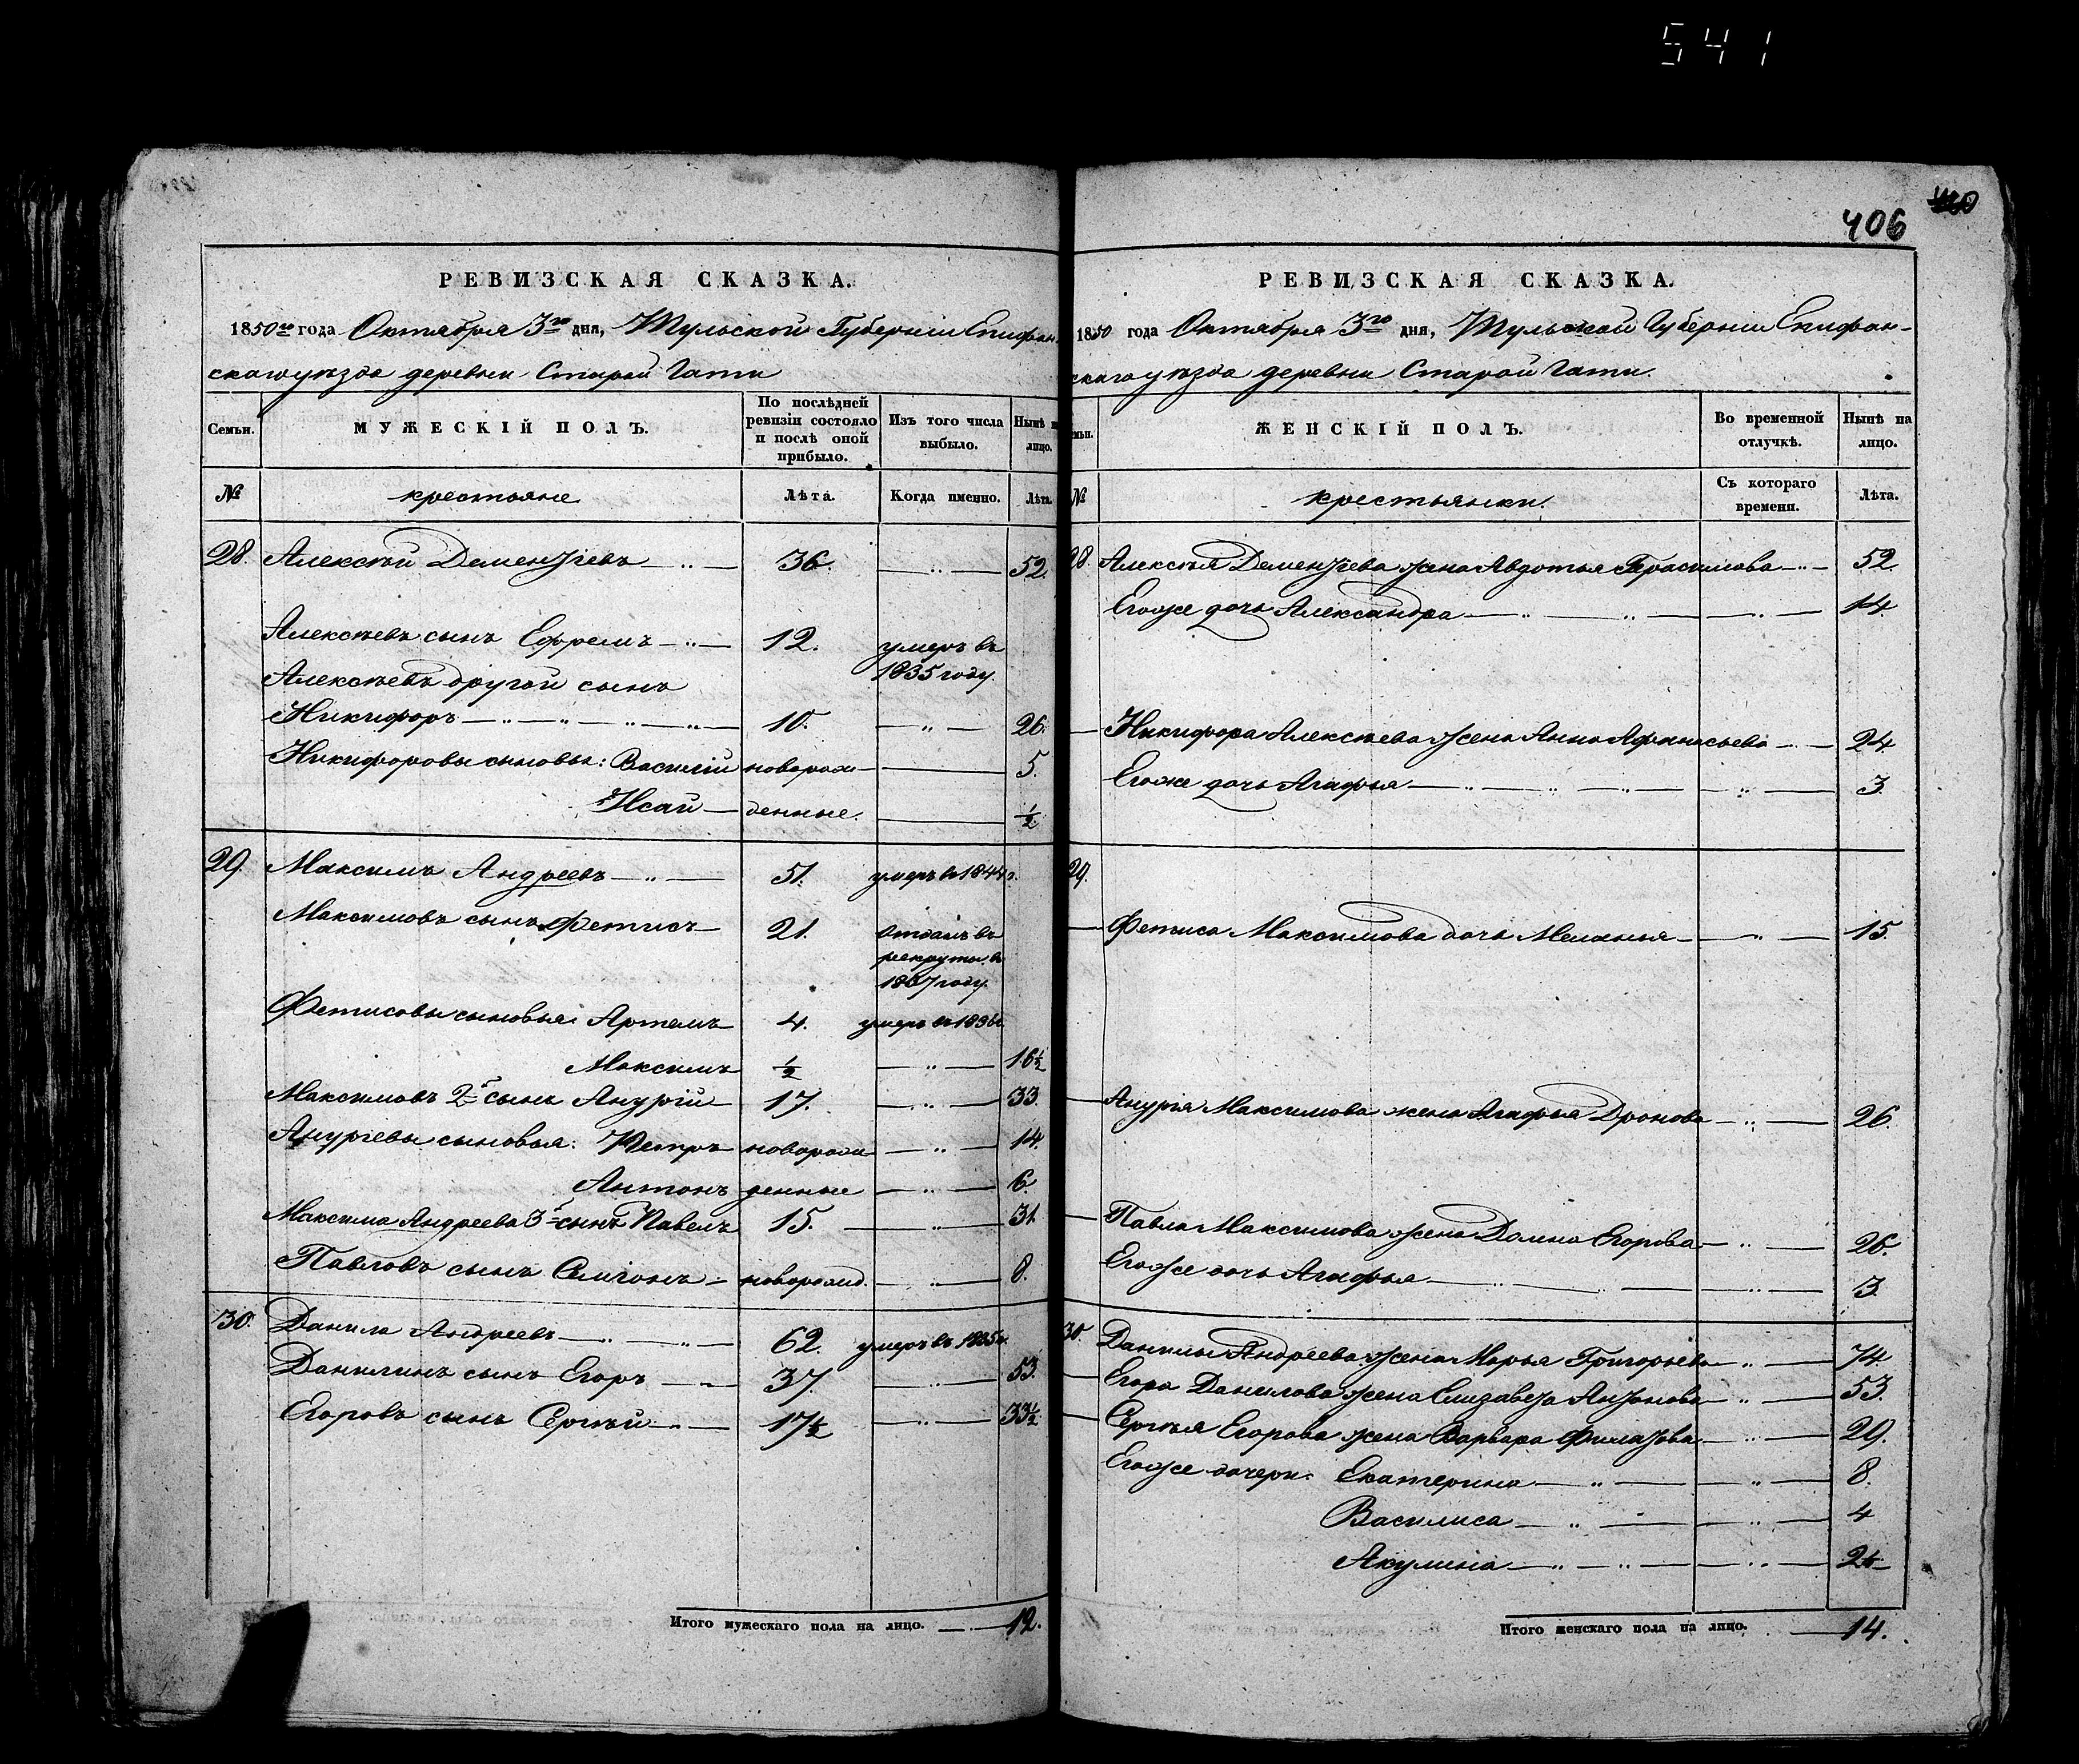 541
406
РЕВИЗСКАЯ СКАЗКА.
1850го года Октября 3го дня, Тульской Губернiи Епифан-
скаго уѣзда деревни Старой Гати
Семьи.
МУЖЕСКІЙ ПОЛЪ.
По послѣдней ревизіи состояло и послѣ оной прибыло.
Изъ того числа выбыло.
Нынѣ на лицо.
№
крестьяне
Лѣта.
Когда именно.
Лѣта.
28. Алексѣй Дементiевъ 36. 52.
Алексѣевъ сынъ Ефремъ 12. умеръ въ
1835 году.
Алексѣевъ другой сынъ
Никифоръ 10. 26.
Никифоровы сыновья: Василiй новорож- 5.
Исай денные. ½
29. Максимъ Андреевъ 51. умеръ въ 1844 г.
Максимовъ сынъ Фетисъ 21. отданъ въ
рекруты въ
году.
Фетисовы сыновья: Артемъ 4. умеръ въ 1836 г.
Максимъ ½ 16½
Максимовъ 2й сынъ Анурiй 17. 33.
Анурiевы сыновья: Петръ новорож- 14.
Антонъ денные 6.
Максима Андреева 3й сынъ Павелъ 15. 31.
Павловъ сынъ Симiонъ новорожд. 8.
30. Данила Андреевъ 62. умеръ въ 1835 г.
Данилинъ сынъ Егоръ 37. 53.
Егоровъ сынъ Сергѣй 17½ 33½
Итого мужескаго пола на лицо. 12.
РЕВИЗСКАЯ СКАЗКА.
1850 года Октября 3го дня, Тульской Губернiи Епифан-
скаго уѣзда деревни Старой Гати.
Семьи.
ЖЕНСКІЙ ПОЛЪ.
Во временной отлучкѣ.
Нынѣ на лицо.
№
крестьянки.
Съ котораго времени.
Лѣта.
28. Алексѣя Дементiева жена Авдотья Герасимова 52.
Егоже дочь Александра 14.
Никифора Алексѣева жена Анна Афанасьева 24
Егоже дочь Агафья 3.
29.
Фетиса Максимова дочь Меланья 15.
Анурiя Максимова жена Агафья Дронова 26.
Павла Максимова жена Домна Егорова 26.
Егоже дочь Агафья 3.
30. Данилы Андреева жена Марья Григорьева 74.
Егора Данилова жена Елизавета Антонова 53.
Сергѣя Егорова жена Варвара Филатова 29.
Егоже дочери: Екатерина 8.
Василиса 4
Акулина
Итого женскаго пола на лицо. 14.